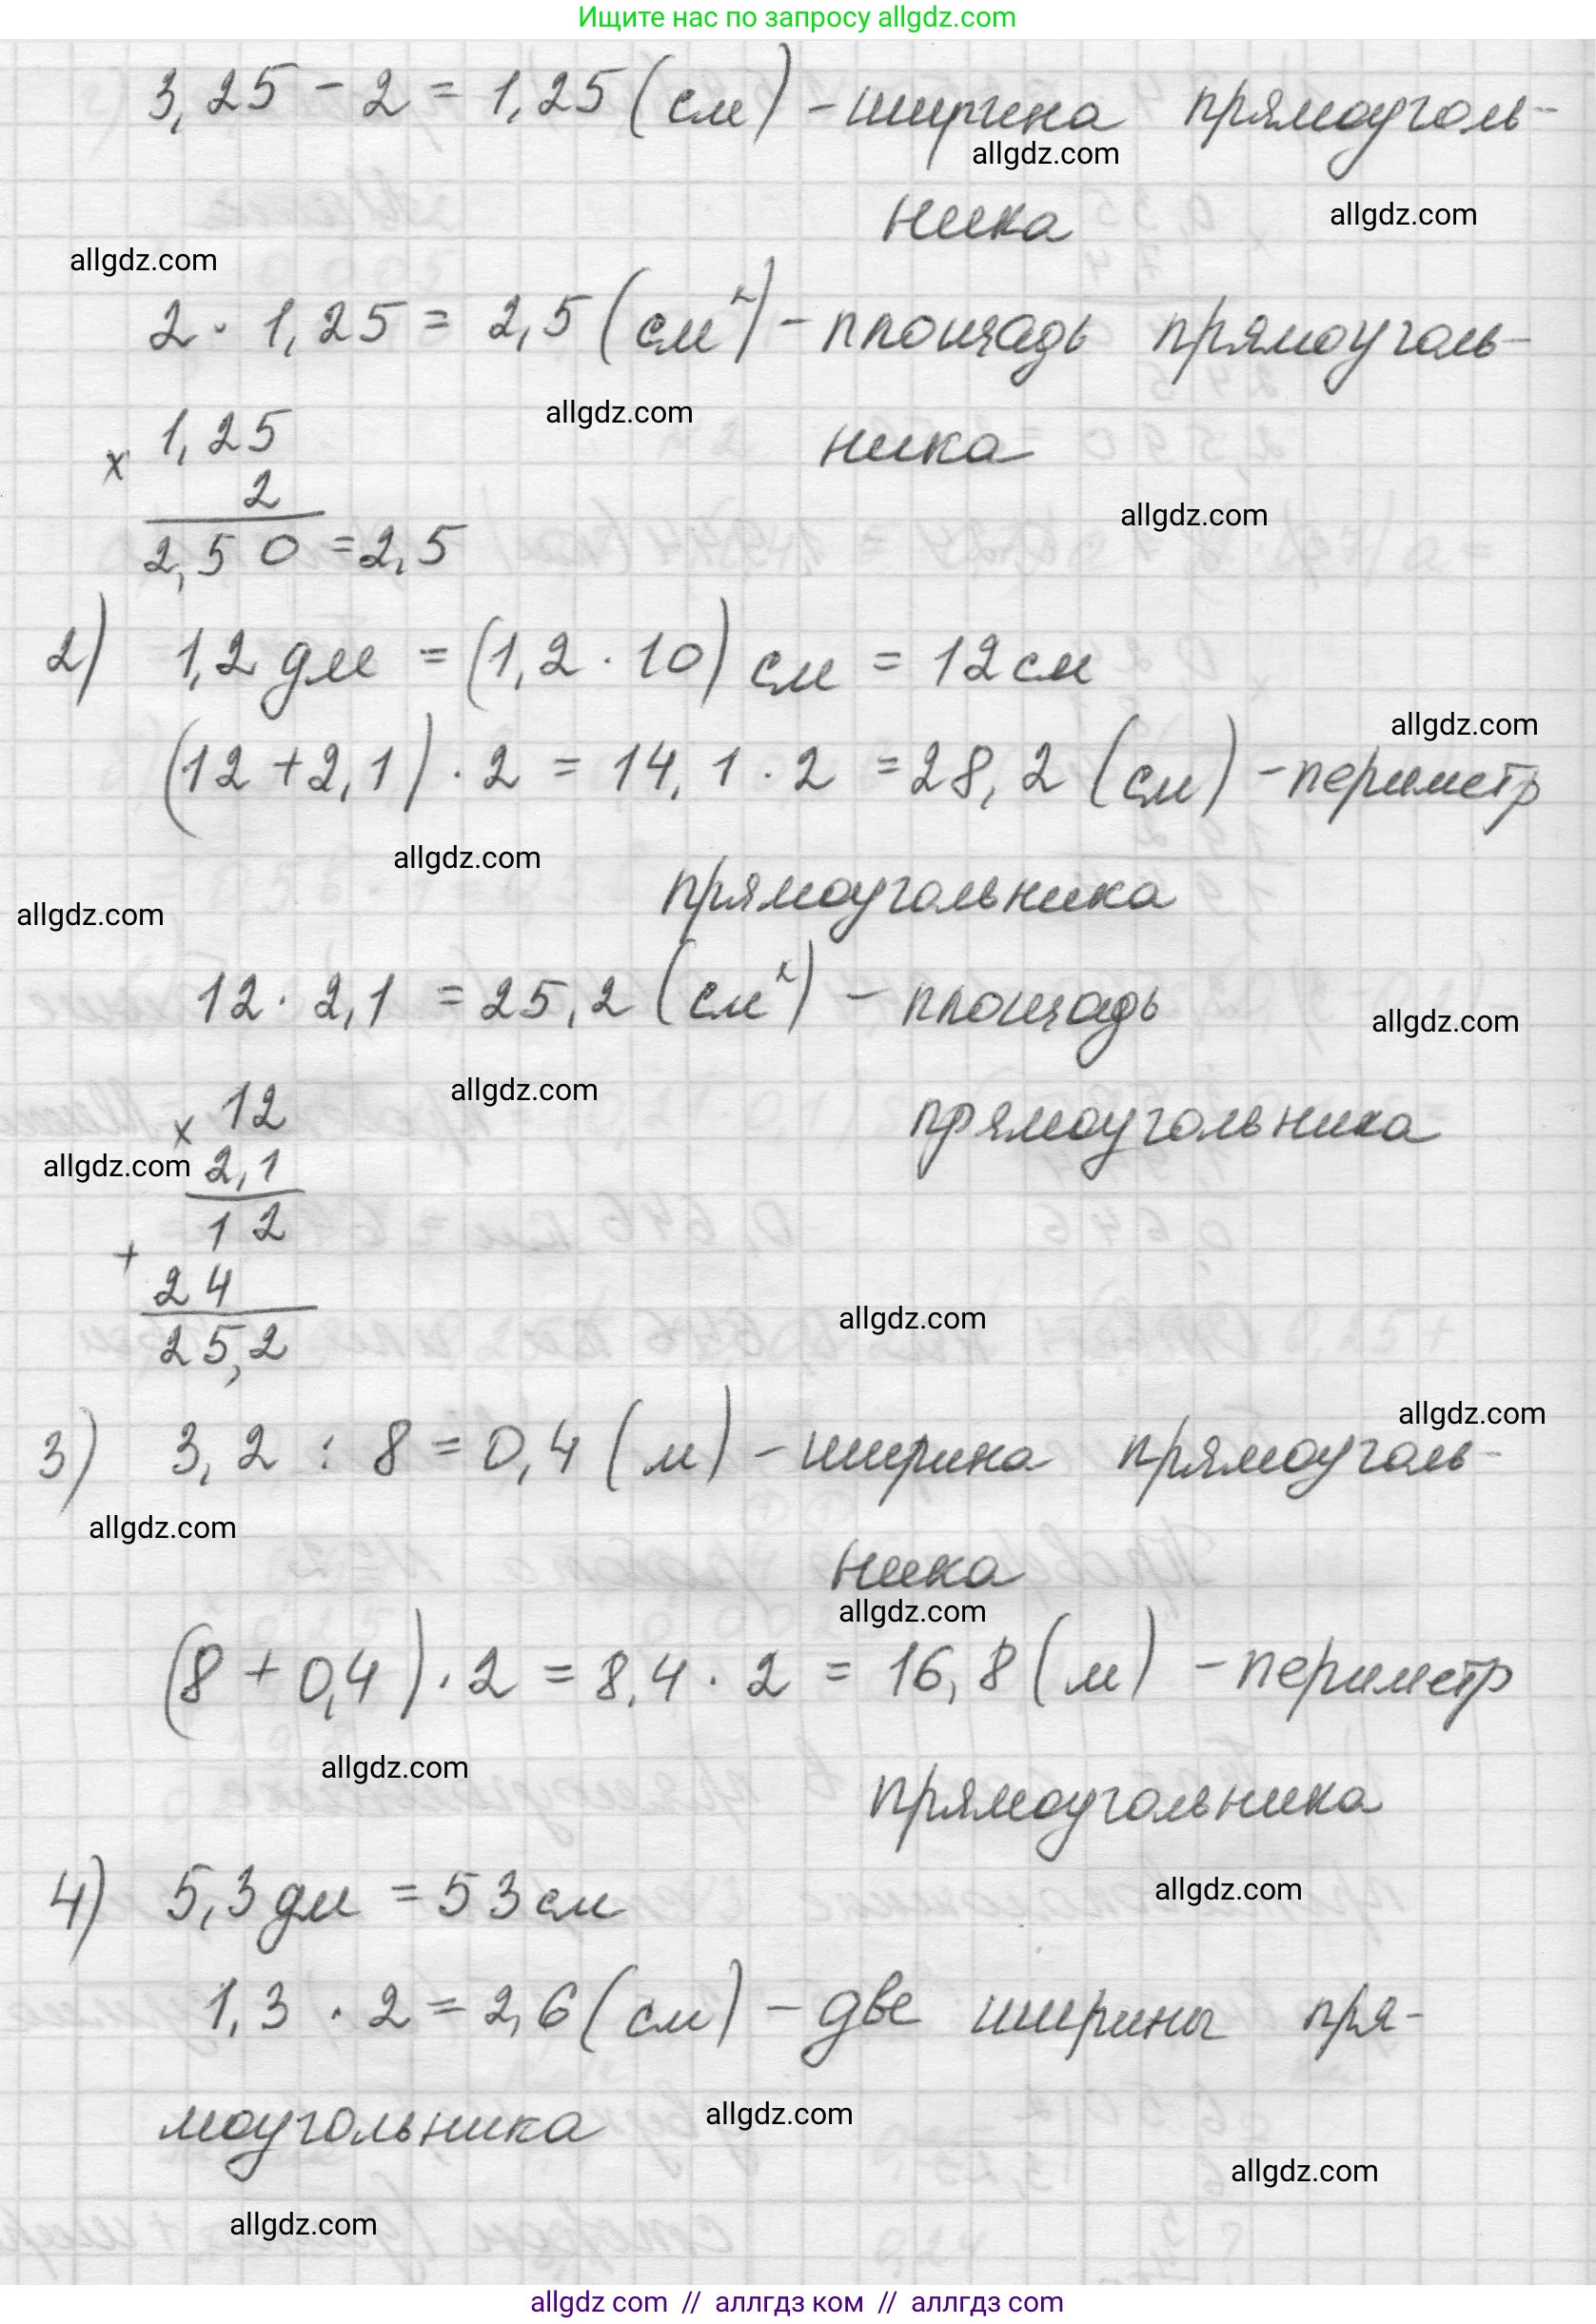 Ищите нас по запросу allgdz.com
3,25 - 2 = 1,25 (см) - ширина прямоуголь-
allgdz.com
ника
allgdz.com
allgdz.com
2 · 1,25 = 2,5 (см²) - площадь прямоуголь-
allgdz.com
× 1,25
ника
2
allgdz.com
2,50 = 2,5
2) 1,2 дм = (1,2 · 10) см = 12 см
allgdz.com
(12 + 2,1) · 2 = 14,1 · 2 = 28,2 (см) - периметр
allgdz.com
прямоугольника
allgdz.com
12 · 2,1 = 25,2 (см²) - площадь
allgdz.com
allgdz.com
× 12
прямоугольника
allgdz.com
2,1
12
+
24
allgdz.com
25,2
allgdz.com
3) 3,2 : 8 = 0,4 (м) - ширина прямоуголь-
allgdz.com
ника
allgdz.com
(8 + 0,4) · 2 = 8,4 · 2 = 16,8 (м) - периметр
allgdz.com
прямоугольника
allgdz.com
4) 5,3 дм = 53 см
1,3 · 2 = 2,6 (см) - две ширины пря-
allgdz.com
моугольника
allgdz.com
allgdz.com
allgdz com // аллгдз ком // аллгдз com